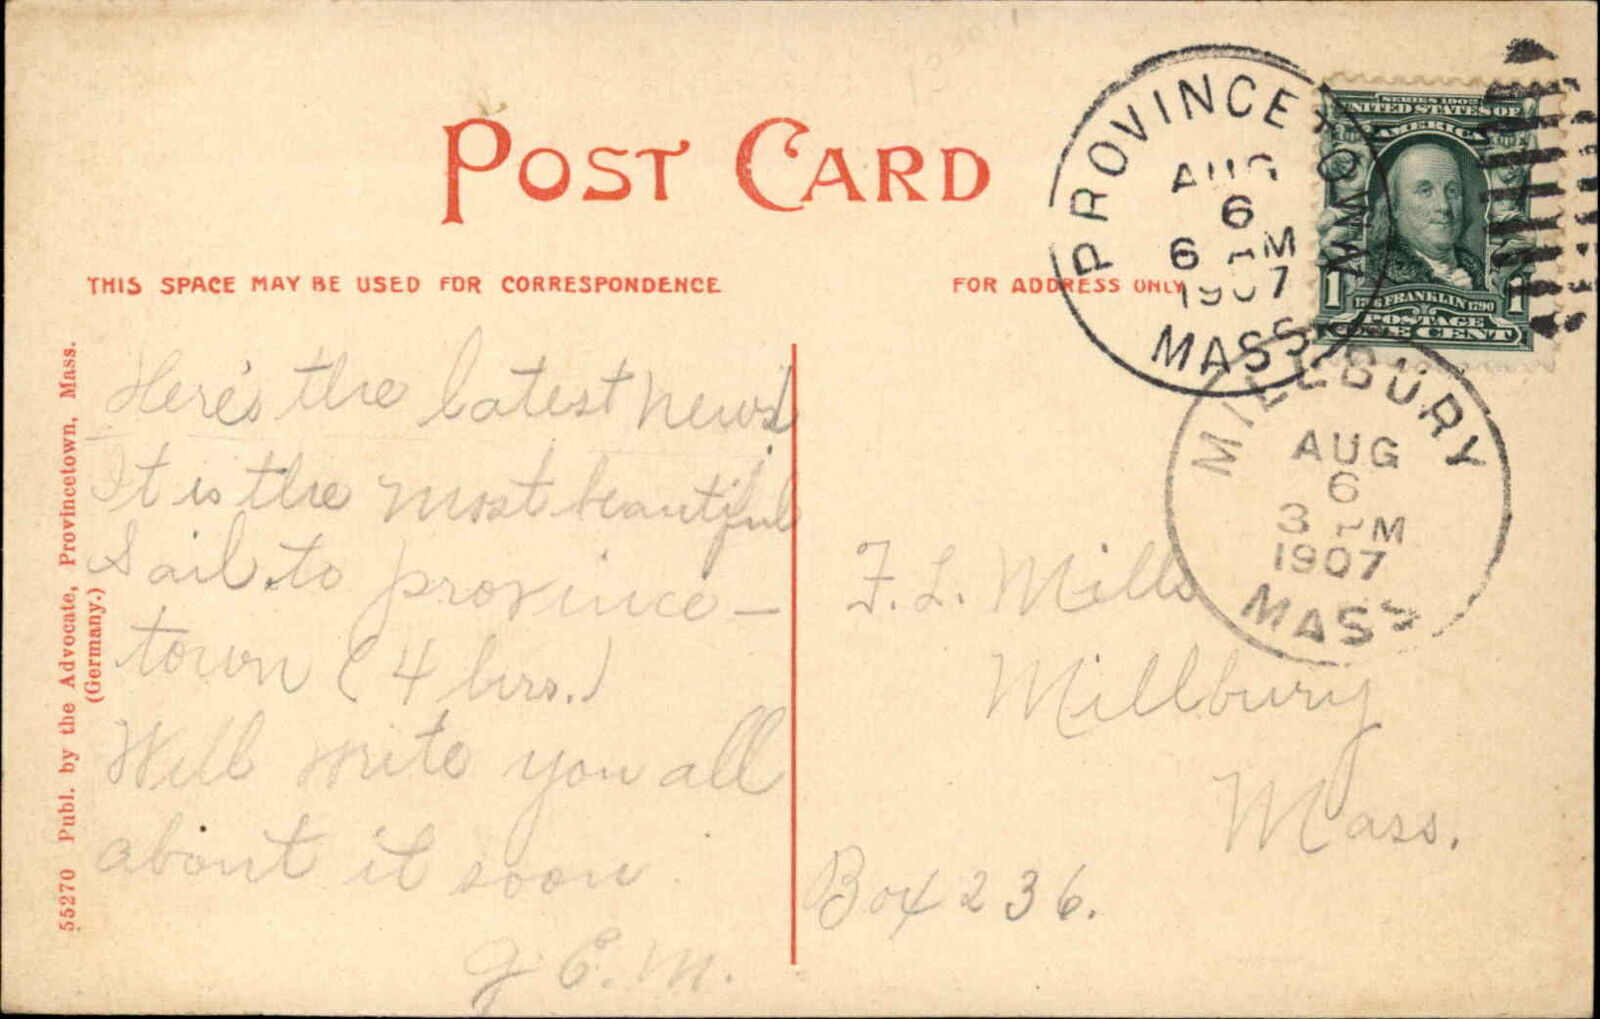 POST CARD
THIS SPACE MAY BE USED FOR CORRESPONDENCE
FOR ADDRESS ONLY
PROVINCETOWN
AUG
6
6 AM
1907
MASS.
SERIES 1902
UNITED STATES OF
AMERICA
1 1706 FRANKLIN 1790 1
POSTAGE
ONE CENT
MILLBURY
AUG
6
3 PM
1907
MASS
Here's the latest news
It is the most beautiful
Sail to province-
town (4 hrs.)
Will write you all
about it soon.
J E. M.
F. L. Mills
Millbury
Mass.
Box 236.
55270 Publ. by the Advocate, Provincetown, Mass.
(Germany.)